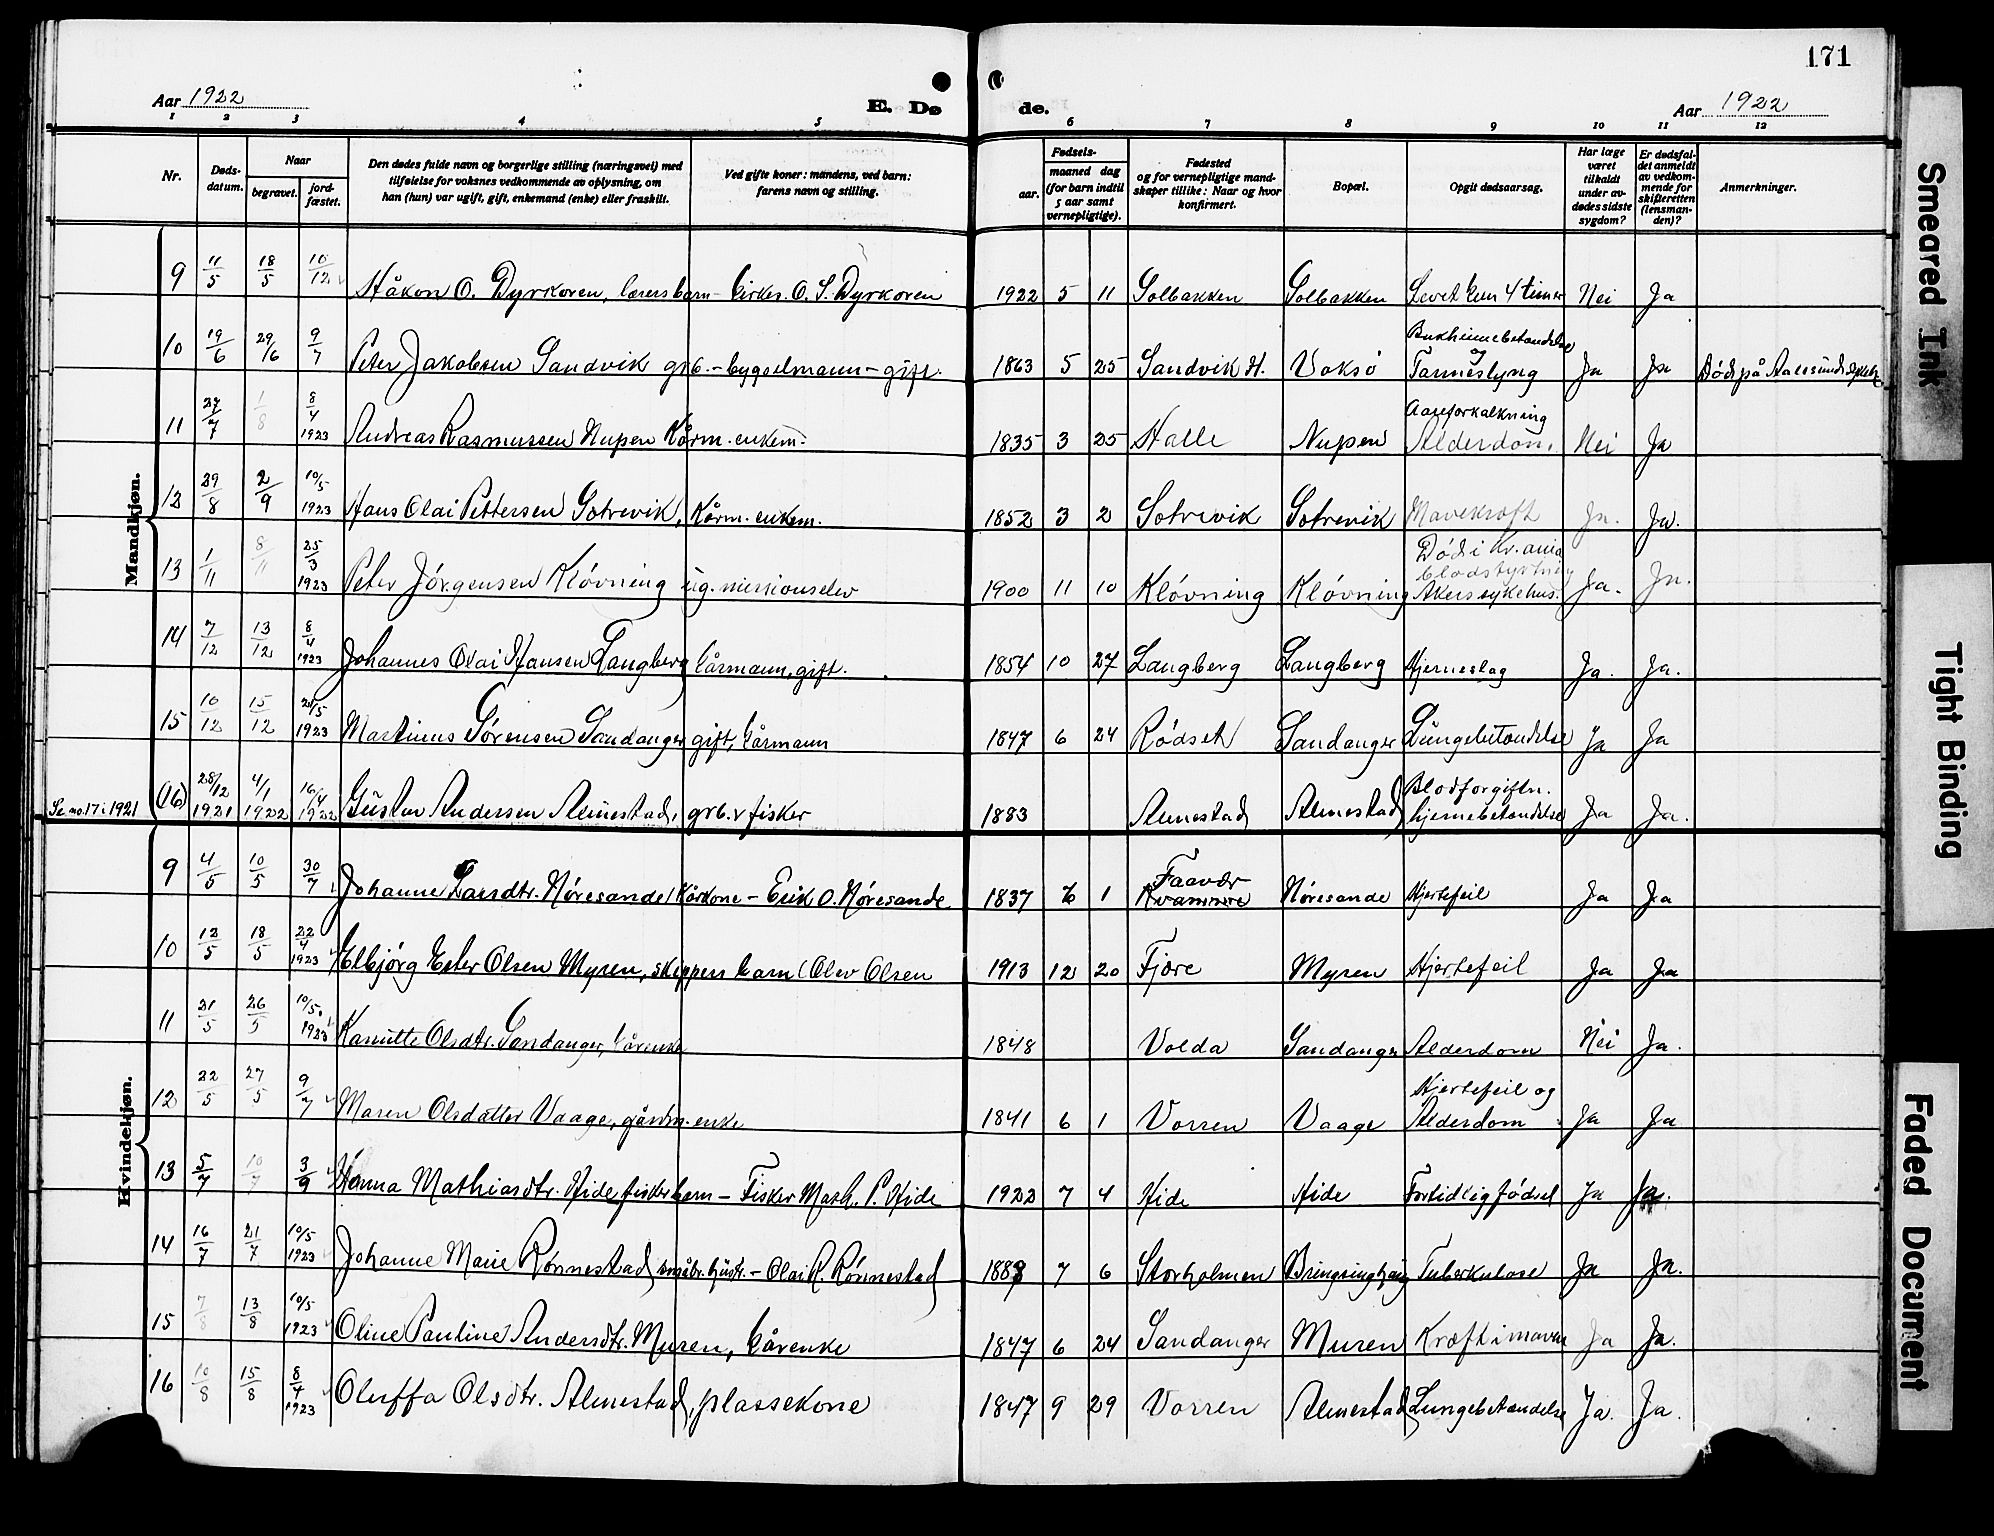 171
Aar 1922
E. Dø
de.
Aar 1922
1 2 3 4 5 6 7 8 9 10 11 12
Nr.
Døds-datum.
Naar
begravet.
jord-fæstet.
Den dødes fulde navn og borgerlige stilling (næringsvei) med
tilføielse for voksnes vedkommende av oplysning, om
han (hun) var ugift, gift, enkemand (enke) eller fraskilt.
Ved gifte koner: mandens, ved barn:
farens navn og stilling.
Fødsels-
aar. maaned dag
(for barn indtil
5 aar samt
vernepligtige).
Fødested
og for vernepligtige mand-
skaper tillike: Naar og hvor
konfirmert.
Bopæl.
Opgit dødsaarsag.
Har læge
været
tilkaldt
under av-
dødes sidste
sygdom?
Er dødsfal-
det anmeldt
av vedkom-
mende for
skifteretten
(lensman-
den)?
Anmerkninger.
Mandkjøn.
9 11/5 18/5 10/12 Håkon O. Dyrkoren, lærers barn - kirkes. O. S. Dyrkoren 1922 5 11 Solbakken Solbakken Levet kun 4 timer Nei Ja
10 19/6 29/6 9/7 Peter Jakobsen Sandvik grb. - bygselmann - gift. 1863 5 25 Sandvik H. Voksø Bukhinnebetændelse og Tarmeslyng Ja Ja Død på Aalesunds sykeh.
11 27/7 1/8 8/4 1923 Andreas Rasmussen Nupen Kårm. enkem. 1835 3 25 Halle Nupen Aareforkalkning Alderdom. Nei Ja
12 29/8 2/9 10/5 1923 Hans Olai Pettersen Sotrevik, Kårm. enkem. 1852 3 2 Sotrevik Sotrevik Mavekræft Ja. Ja.
13 1/11 8/11 25/3 1923 Peter Jørgensen Kløvning ug. missionselev 1900 11 10 Kløvning Kløvning Død i Kr.ania blodstyrtning Akers sykehus. Ja. Ja.
14 7/12 13/12 8/4 1923 Johannes Olai Hansen Langberg kårmann, gift. 1854 10 27 Langberg Langberg Hjerneslag Ja. Ja.
15 10/12 15/12 21/5 1923 Martinus Sørensen Sandanger gift, kårmann 1847 6 24 Rødset Sandanger Lungebetændelse Ja Ja
Se no. 17 i 1921 (16) 28/12 1921 4/1 1922 16/4 1922 Gustav Andersen Almestad, grb. & fisker 1883 Almestad Almestad Blodforgiftn. hjernebetændelse Ja Ja.
Hvindekjøn.
9 4/5 10/5 30/7 Johanne Larsdtr. Nøresande, Kårkone - Erik O. Nøresande 1837 6 1 Faavær Kvamme Nøresande Hjertefeil Ja Ja
10 12/5 18/5 22/4 1923 Elbjørg Ester Olsen Myren, skippers barn (Olav Olsen 1913 12 20 Fjøre Myren Hjertefeil Ja Ja
11 21/5 26/5 10/5. 1923 Olsdtr. Sandanger, kårenke 1848 Volda Sandanger Alderdom Nei Ja.
12 22/5 27/5 9/7 Maren Olsdatter Vaage, gårdm. enke 1841 6 1 Vorren Vaage Hjertefeil og Alderdom Ja Ja
13 5/7 10/7 3/9 Hanna Mathiasdtr. Hide fiskerbarn - Fisker Math. P. Hide 1922 7 4 Hide Hide Fortidlig fødsel Ja Ja.
14 16/7 21/7 10/5 1923 Johanne Marie Rønnestad, småbr. hustr. - Olai R. Rønnestad 1888 7 6 Storholmen Bringsinghaug Tuberkulose Ja Ja.
15 7/8 13/8 10/5 1923 Oline Pauline Andersdtr. Muren, kårenke 1847 6 24 Sandanger Muren Kræft i maven Ja Ja.
16 10/8 15/8 8/4 1923 Oluffa Olsdtr. Almestad, plassekone 1847 9 29 Vorren Almestad Lungebetændelse Ja. Ja.
Smeared Ink
Tight Binding
Faded Document